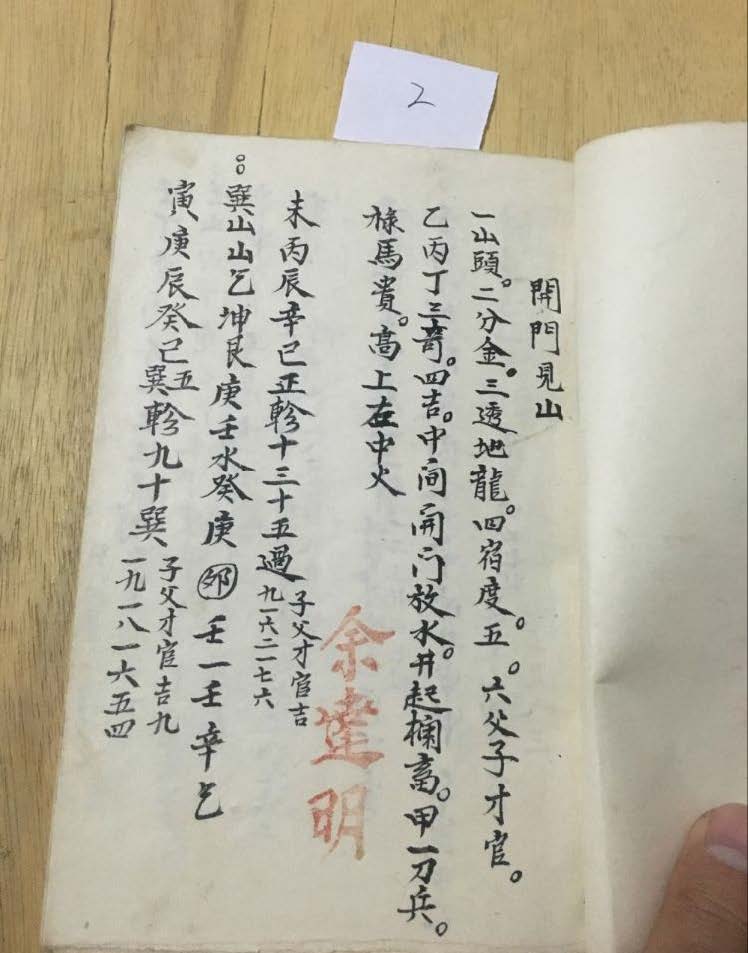 2
開門見山
一山頭。二分金。三透地龍。四宿度。五。六父子才官。
乙丙丁三竒。四吉。中间開门放水。井起欄畜。甲一刀兵。
祿馬貴。高上在中火
余建明
未丙辰辛巳正軫十三十五過
子父才官吉
九一六二一七六
巽山山乞坤艮庚壬水癸庚壬一壬辛乞
寅庚辰癸巳五巽軫九十巽
子父才官吉九
一九一八一六五四